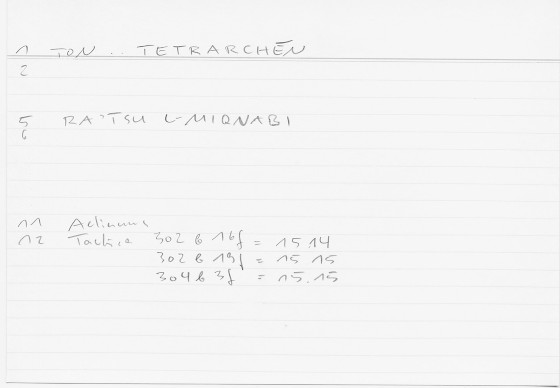 1 TON .. TETRARCHĒN
2
5 RA'TSU L-MIQNABI
6
11 Aelianus
12 Tactica 302 b 16f = 15 14
302 b 19f = 15 15
304 b 3f = 15.15